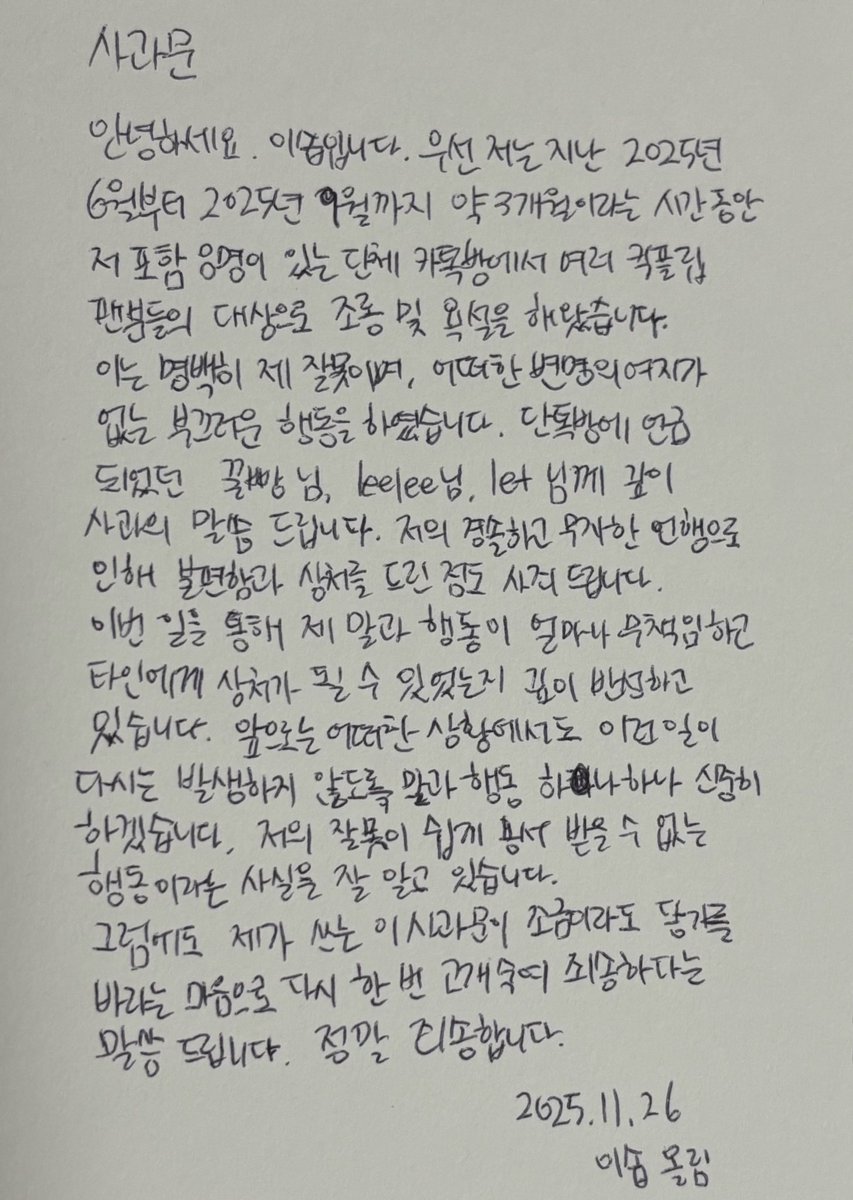 사과문
안녕하세요. 이솝입니다. 우선 저는 지난 2025년
6월부터 2025년 9월까지 약 3개월이라는 시간동안
저 포함 8명이 있는 단체 카톡방에서 여러 킥플립
팬분들의 대상으로 조롱 및 욕설을 해왔습니다.
이는 명백히 제 잘못이며, 어떠한 변명의 여지가
없는 부끄러운 행동을 하였습니다. 단톡방에 언급
되었던 꿀빵님, leelee님, let 님께 깊이
사과의 말씀 드립니다. 저의 경솔하고 무지한 언행으로
인해 불편함과 상처를 드린 점도 사죄 드립니다.
이번 일을 통해 제 말과 행동이 얼마나 무책임하고
타인에게 상처가 될 수 있었는지 깊이 반성하고
있습니다. 앞으로는 어떠한 상황에서도 이런 일이
다시는 발생하지 않도록 말과 행동 하나하나 신중히
하겠습니다. 저의 잘못이 쉽게 용서 받을 수 없는
행동이라는 사실을 잘 알고 있습니다.
그럼에도 제가 쓰는 이 사과문이 조금이라도 닿기를
바라는 마음으로 다시 한 번 고개숙여 죄송하다는
말씀 드립니다. 정말 죄송합니다.
2025.11.26
이솝 올림